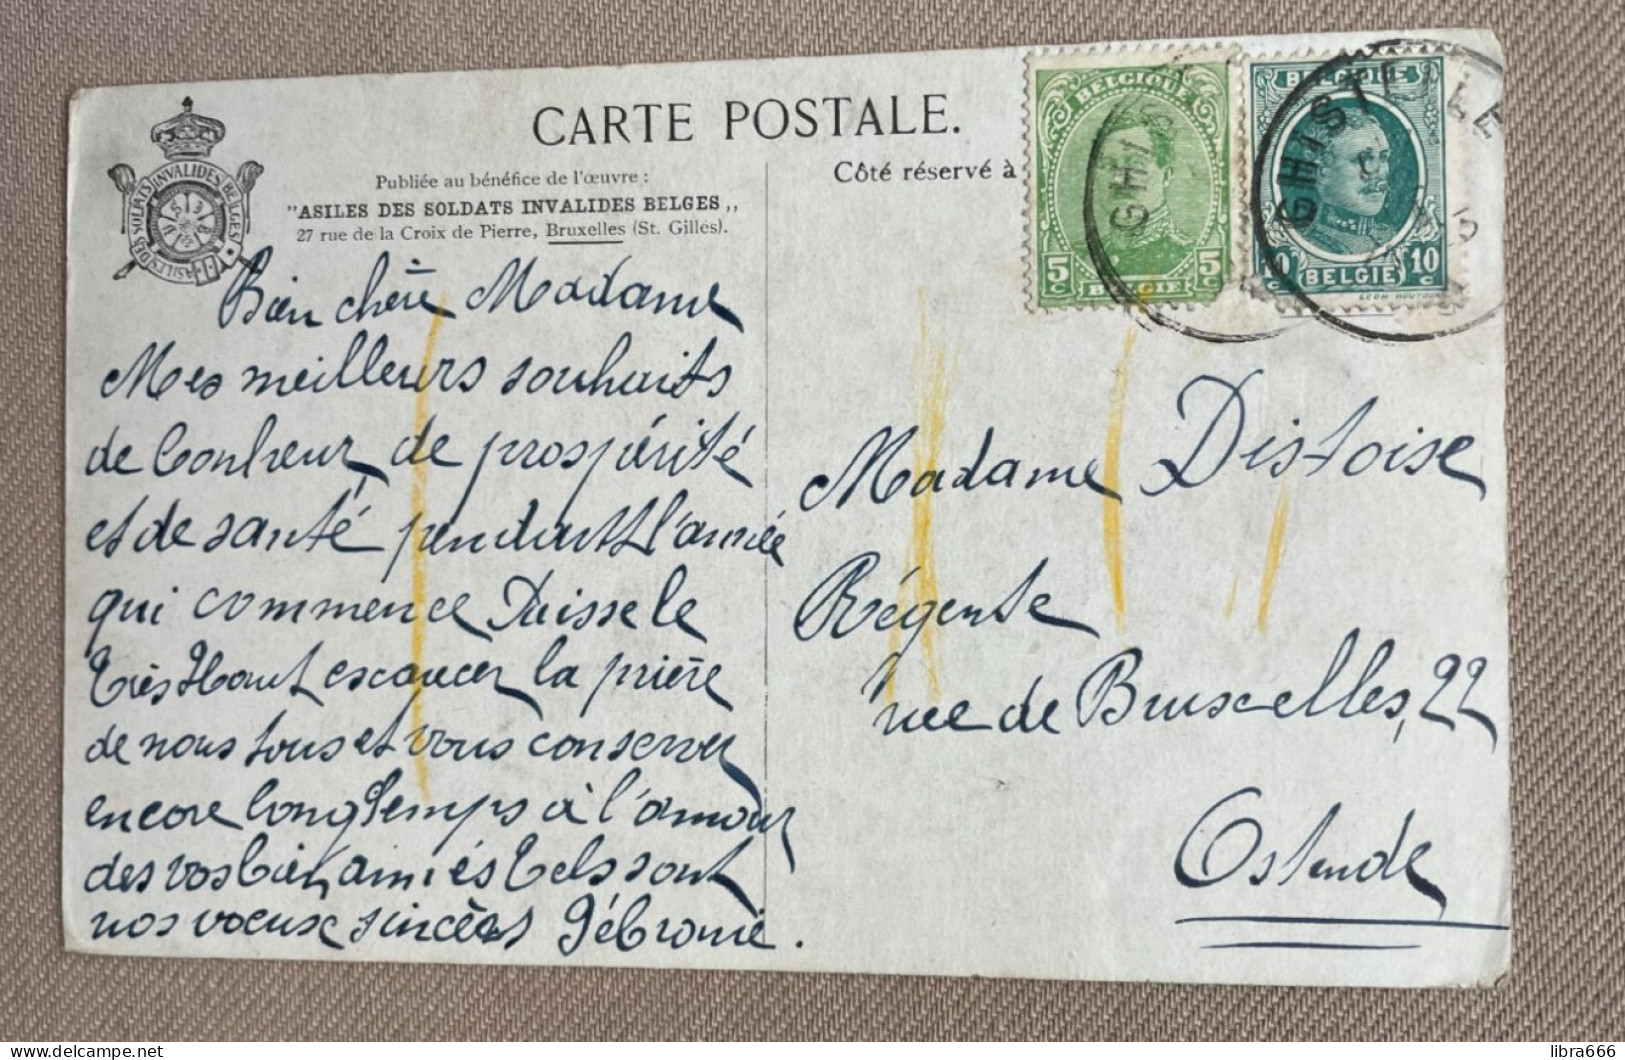 CARTE POSTALE.
Publiée au bénéfice de l'œuvre :
"ASILES DES SOLDATS INVALIDES BELGES,,
27 rue de la Croix de Pierre, Bruxelles (St. Gilles).
ASILES DES SOLDATS INVALIDES BELGES
Côté réservé à
BELGIQUE
5c 5c
BELGIE
BELGIQUE
10c 10c
BELGIE
GHISTELLE
Bien chère Madame
Mes meilleurs souhaits
de bonheur, de prospérité
et de santé pendant l'année
qui commence Puisse le
très Haut exaucer la prière
de nous tous et vous conserver
encore longtemps à l'amour
des vos bien aimés tels sont
nos voeux sincères Gébronie.
Madame Distoise
Régente
rue de Bruxelles, 22
Ostende
delcampe.net
libra666